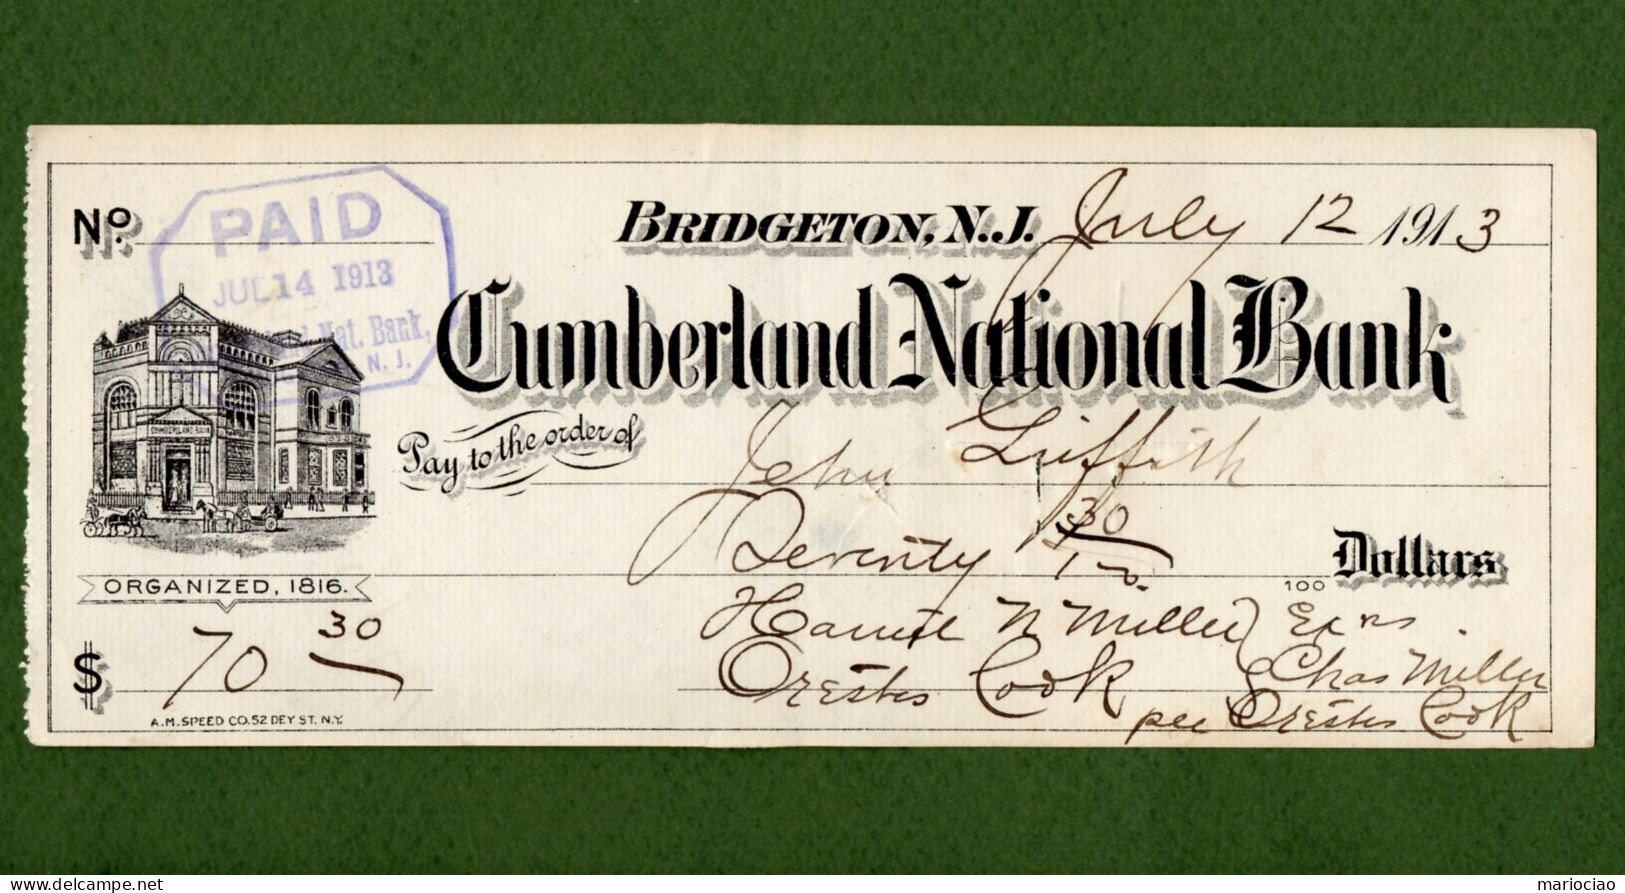 No.
PAID
JUL 14 1913
Nat. Bank,
N. J.
BRIDGETON, N.J. July 12 1913
Cumberland National Bank
CUMBERLAND BANK
Pay to the order of John Griffith
Seventy 30/100 100 Dollars
ORGANIZED, 1816.
$ 70 30
Harriet N Miller } Exrs.
Orestes Cook } Chas Miller
per Orestes Cook
A.M. SPEED CO. 52 DEY ST. N.Y.
delcampe.net
mariociao